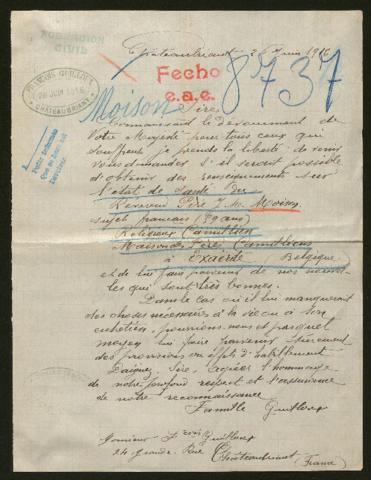 POBLACION
CIVIL
Châteaubriant 26 Juin 1916
FRANÇOIS GUILLOUX
26 JUIN 1916
CHATEAUBRIANT
Fecho
e.a.e.
8737
Moison
Sire
Connaissant le dévouement de
Votre Majesté pour tous ceux qui
souffrent je prends la liberté de venir
vous demander s'il serait possible
d'obtenir des renseignements sur
l'état de santé du
Révérend Père J. M. Moison
sujet français (39 ans)
Religieux Camillien
Maison des Pères Camilliens
à Exaerde (Belgique)
et de lui faire parvenir de nos nouvel-
les qui sont très bonnes.
Dans le cas où il lui manquerait
des choses nécessaires à la vie ou à son
entretien pourrions-nous et par quel
moyen lui faire parvenir sûrement
des provisions ou effets d'habillement
Daignez Sire, agréer l'hommage
de notre profond respect et l'assurance
de notre reconnaissance
Famille Guilloux
Monsieur Fçois Guilloux
24 Grande Rue Châteaubriant (France)